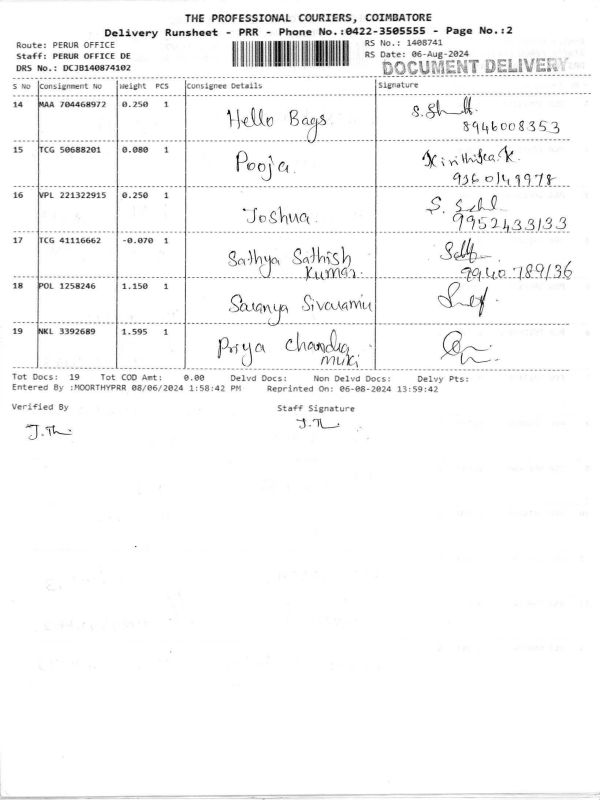 THE PROFESSIONAL COURIERS, COIMBATORE
Delivery Runsheet - PRR - Phone No.:0422-3505555 - Page No.:2
Route: PERUR OFFICE RS No.: 1408741
Staff: PERUR OFFICE DE RS Date: 06-Aug-2024
DRS No.: DCJB140874102 DOCUMENT DELIVERY
S No Consignment No Weight PCS Consignee Details Signature
14 MAA 704468972 0.250 1 Hello Bags
8946008353
15 TCG 50688201 0.080 1 Pooja. Kirithika.K.
9360149978
16 VPL 221322915 0.250 1 Joshua.
9952433133
17 TCG 41116662 -0.070 1 Sathya Sathish
Kumar. 9940789136
18 POL 1258246 1.150 1 Saranya Sivaramu
19 NKL 3392689 1.595 1 Priya Chandra
Tot Docs: 19 Tot COD Amt: 0.00 Delvd Docs: Non Delvd Docs: Delvy Pts:
Entered By :MOORTHYPRR 08/06/2024 1:58:42 PM Reprinted On: 06-08-2024 13:59:42
Verified By Staff Signature